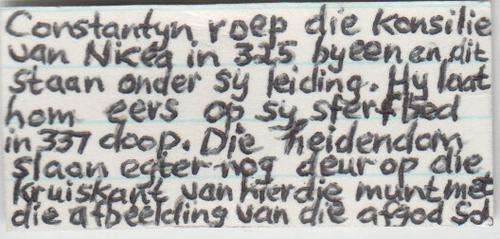 Constantyn roep die konsilie
van Nicea in 325 byeen en dit
staan onder sy leiding. Hy laat
hom eers op sy sterfbed
in 337 doop. Die heidendom
slaan egter nog deur op die
kruiskant van hierdie munt met
die afbeelding van die afgod Sol.